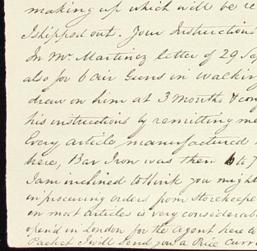 making up which will be re
Shipped out. Your Instructions
In Mr Martinez letter of 29 Sep
also for 6 air Guns in
draw on him at 3 Months & con
his instructions by remitting me
Every article manufactured
here, Bar Iron was then £ 47
I am inclined to think you might
in procuring orders from Storekeepe
on most articles is very considerabl
opend in London for the Agent here to
Packet I will send you a Price Curr